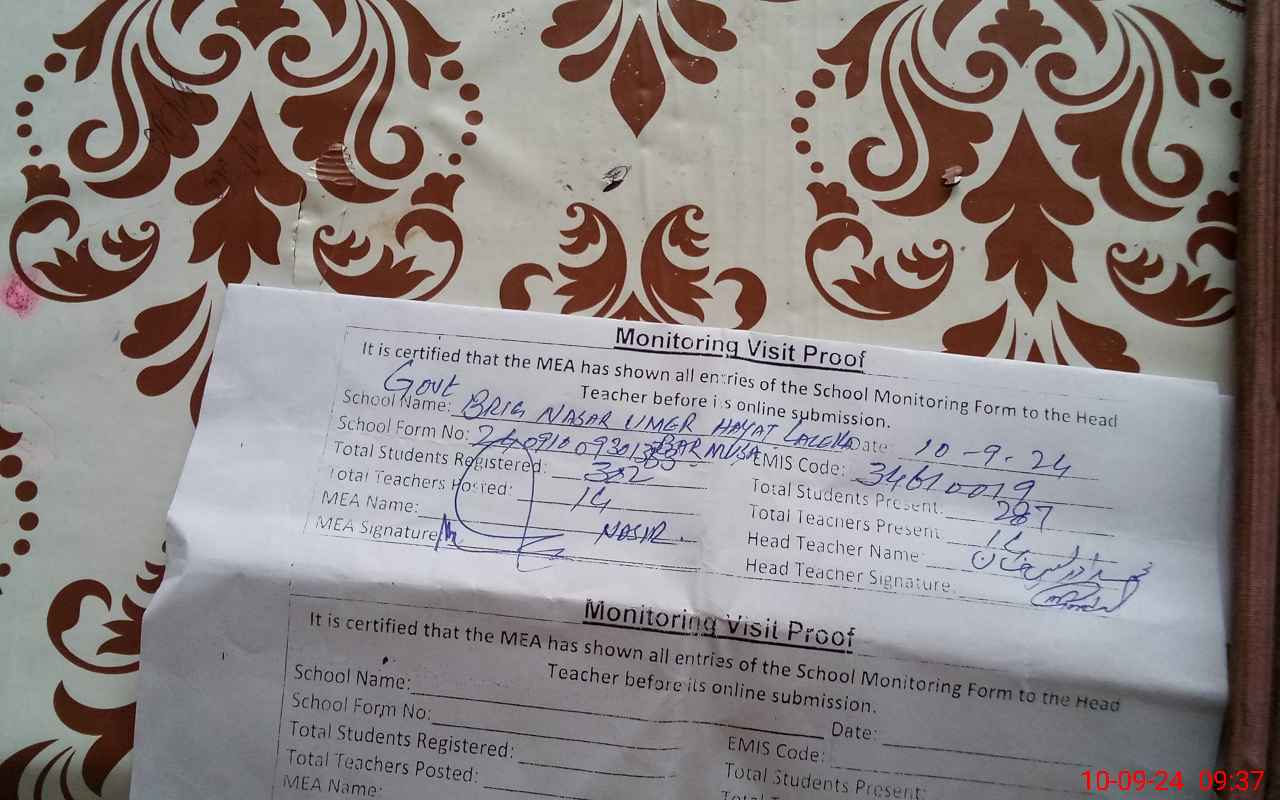 Monitoring Visit Proof
It is certified that the MEA has shown all entries of the School Monitoring Form to the Head
Teacher before its online submission.
Govt
School Name: BRIG NASAR UMER HAYAT LALEKA Date: 10-9-24
BAR MUSA
School Form No: EMIS Code: 34610019
Total Students Registered: 382 Total Students Present: 287
Total Teachers Posted: 14 Total Teachers Present 14
MEA Name: NASIR. Head Teacher Name:
MEA Signature Head Teacher Signature:
Monitoring Visit Proof
It is certified that the MEA has shown all entries of the School Monitoring Form to the Head
Teacher before its online submission.
School Name: Date:
School Form No: EMIS Code:
Total Students Registered: Total Students Present:
Total Teachers Posted:
MEA Name:
10-09-24 09:37